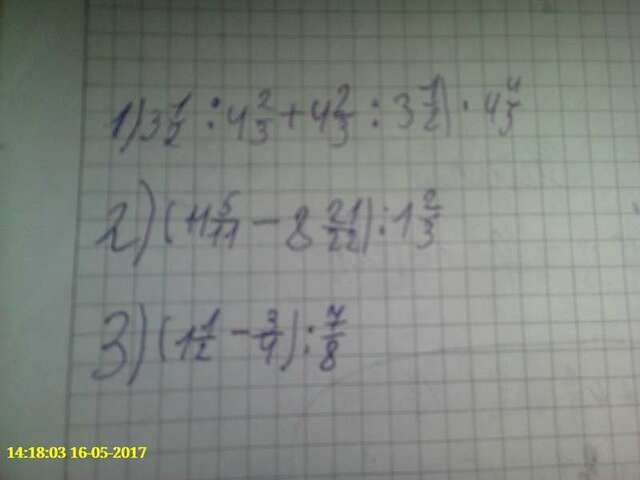 1) 3 1/2 : 4 2/3 + 4 2/3 : 3 1/2) · 4 4/5
2) (11 5/11 - 8 21/22) : 1 2/3
3) (1 1/2 - 3/4) : 7/8
14:18:03 16-05-2017